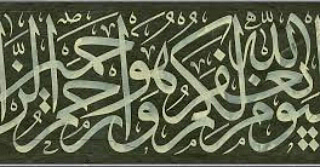 اليوم يغفر الله لكم وهو ارحم الراحمين